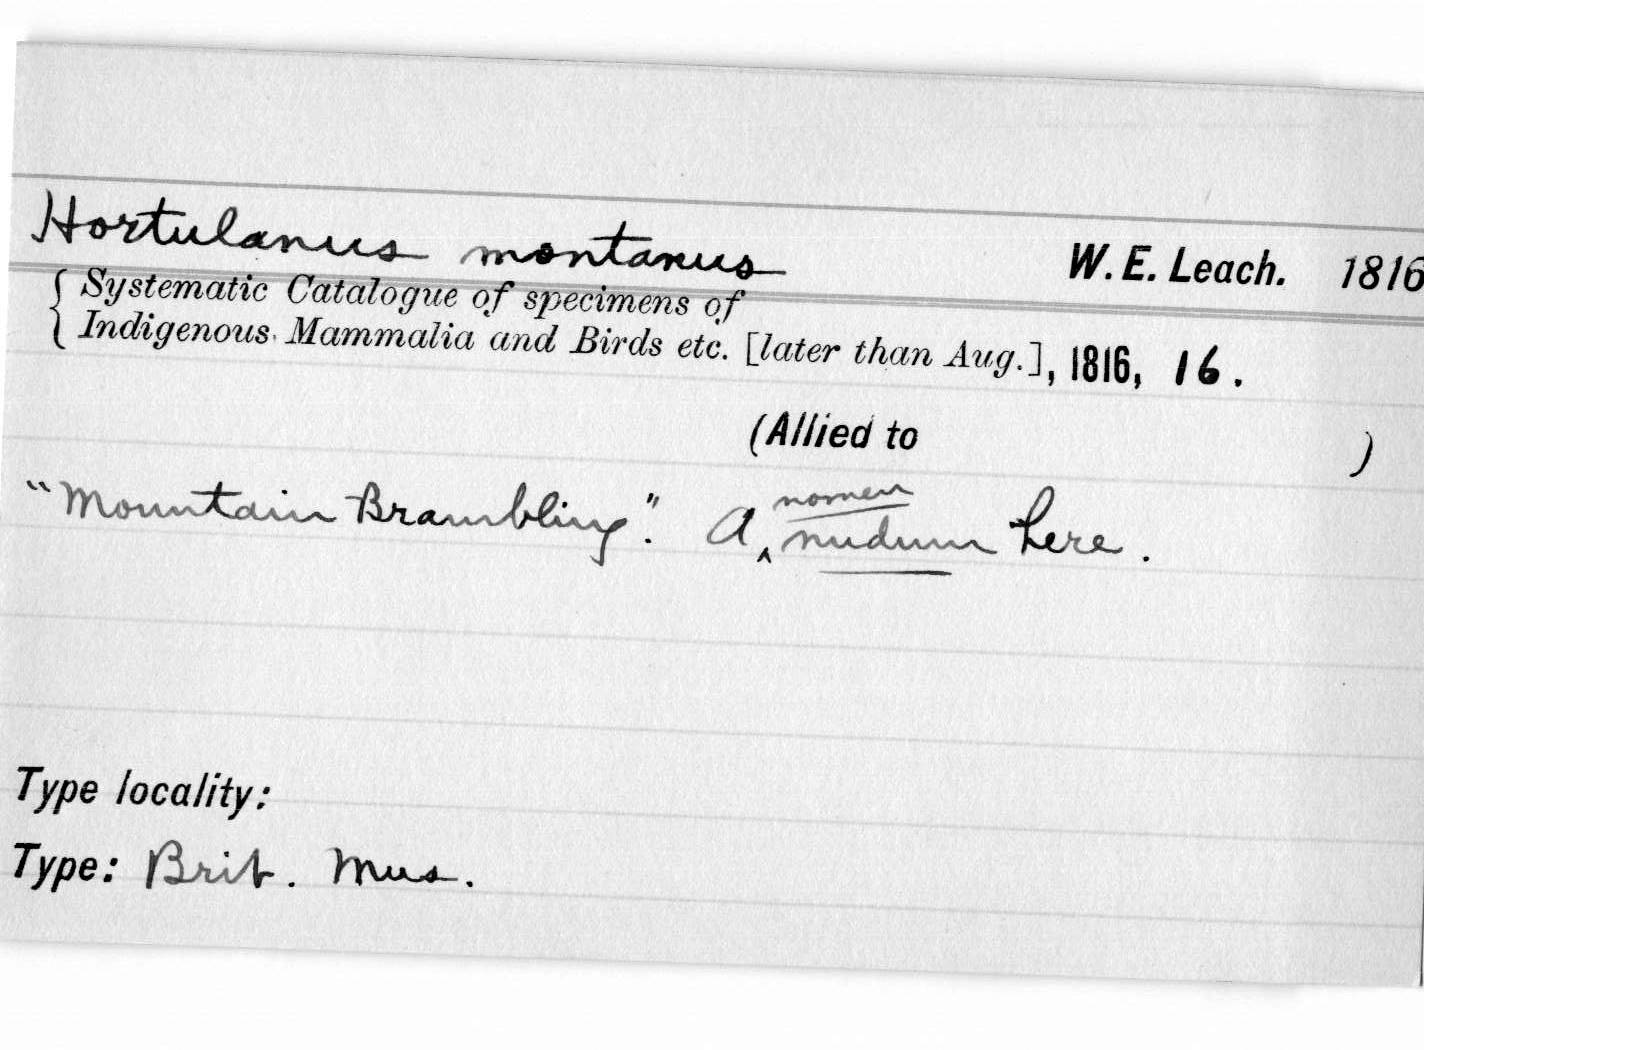 Hortulanus montanus W. E. Leach. 1816
Systematic Catalogue of specimens of
Indigenous Mammalia and Birds etc. [later than Aug.], 1816, 16.
(Allied to )
"Mountain Brambling". A nomen nudum here.
Type locality:
Type: Brit. Mus.